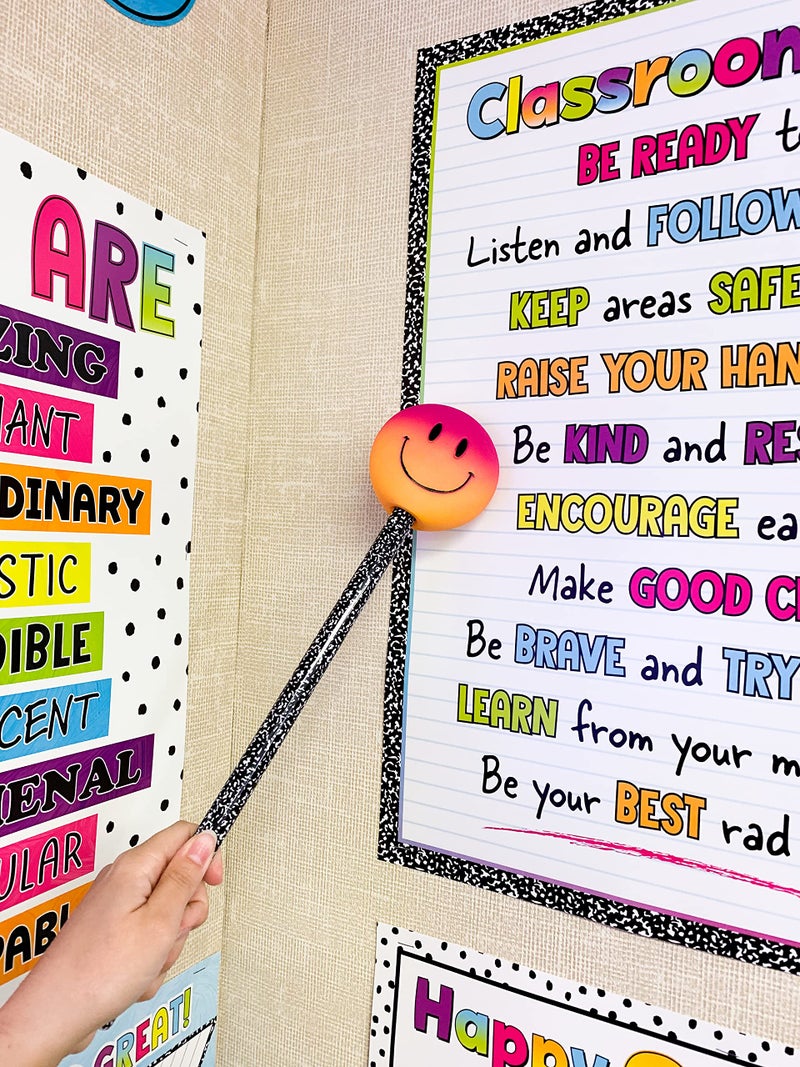 ARE
ZING
IANT
DINARY
STIC
DIBLE
CENT
ENAL
ULAR
PABL
GREAT!
Classroom
BE READY t
Listen and FOLLOW
KEEP areas SAFE
RAISE YOUR HAN
Be KIND and RES
ENCOURAGE ea
Make GOOD C
Be BRAVE and TRY
LEARN from your m
Be your BEST rad
Happy